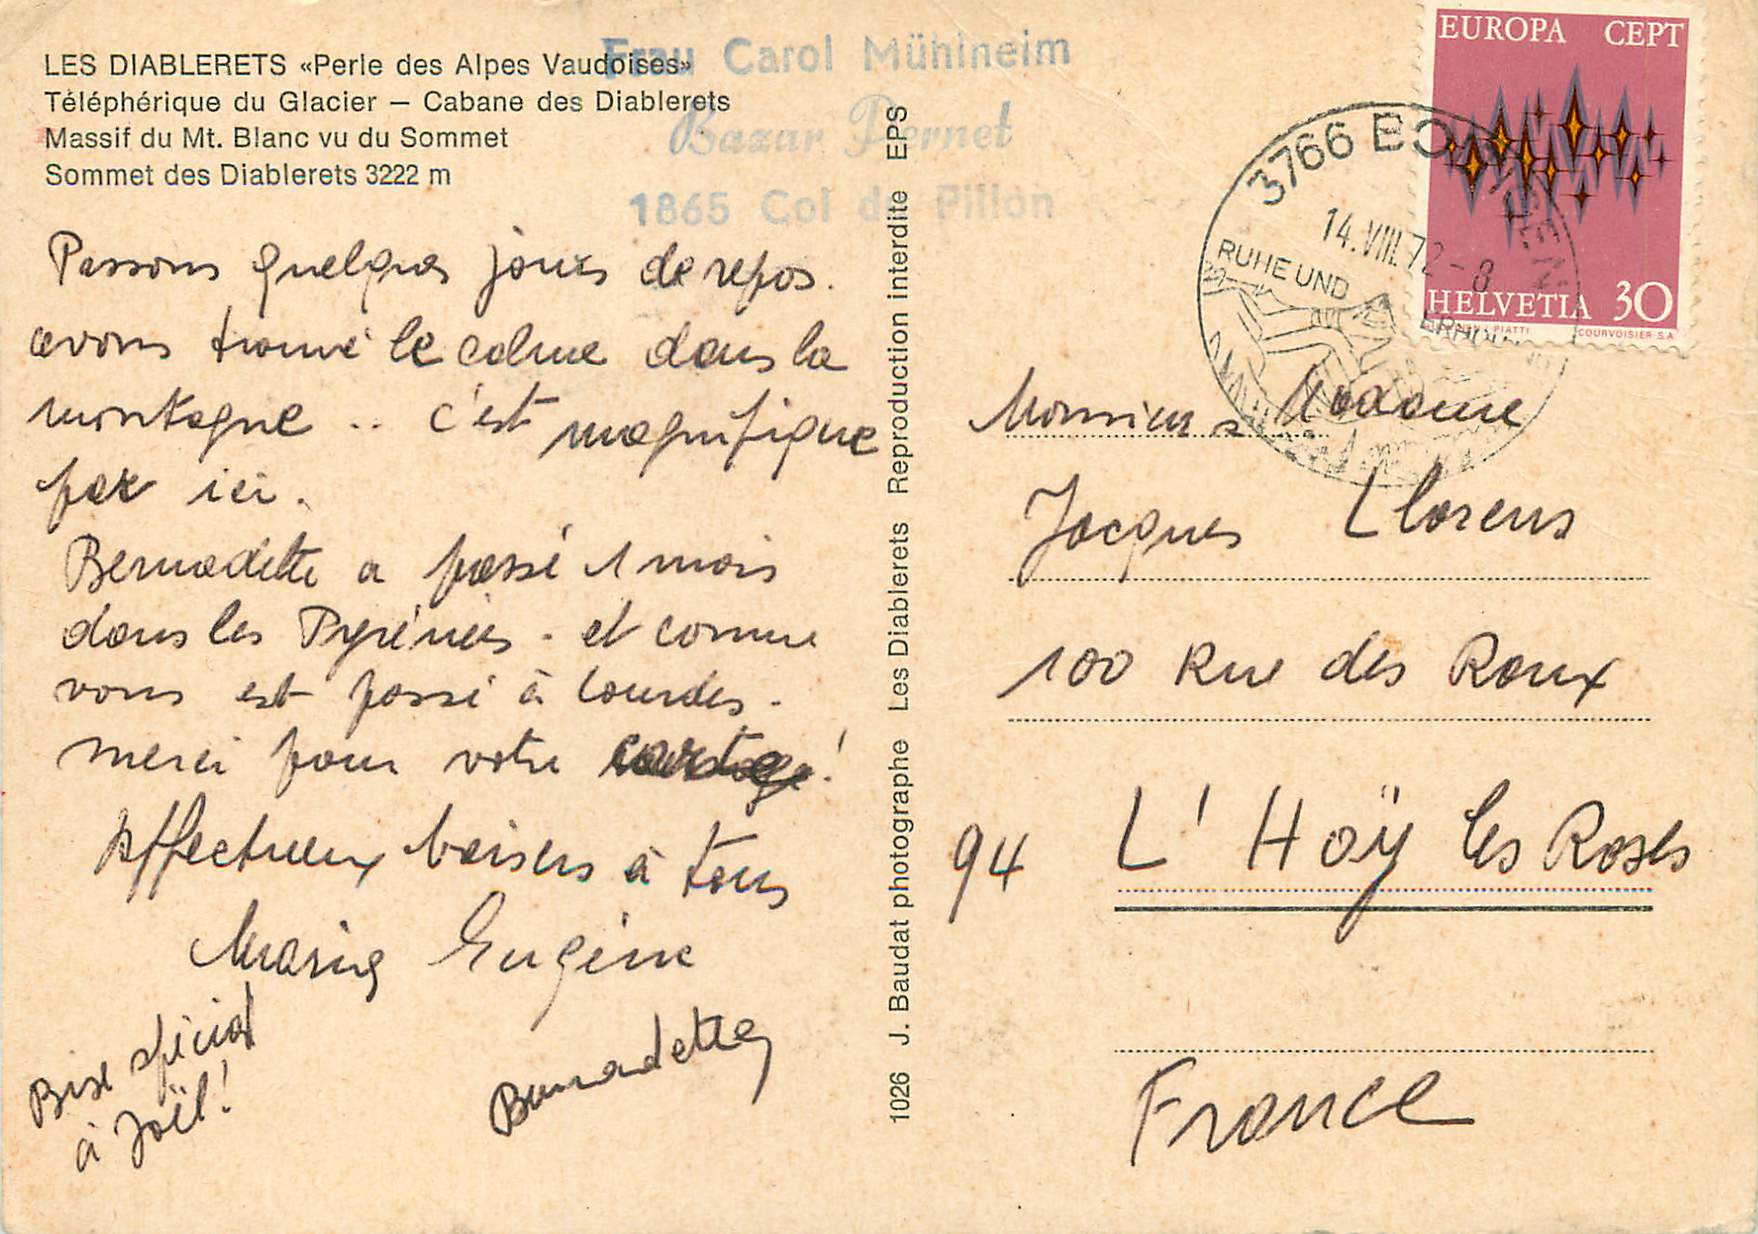 LES DIABLERETS «Perle des Alpes Vaudoises»
Téléphérique du Glacier – Cabane des Diablerets
Massif du Mt. Blanc vu du Sommet
Sommet des Diablerets 3222 m
Frau Carol Mühlheim
Bazar Pernet
1865 Col du Pillon
Passons quelques jours de repos.
avons trouvé le calme dans la
montagne .. c'est magnifique
par ici.
Bernadette a passé 1 mois
dans les Pyrénées - et comme
vous est passé à Lourdes -
merci pour votre !
Affectueux baisers à tous
Eugène
Bernadette
Bise spécial
à Joël!
1026 J. Baudat photographe Les Diablerets Reproduction interdite EPS
EUROPA CEPT
HELVETIA 30
PIATTI COURVOISIER S.A
3766
14.VIII.72-8
RUHE UND
Monsieur & Madame
Jacques Llorens
100 Rue des Roux
94 L'Haÿ les Roses
France